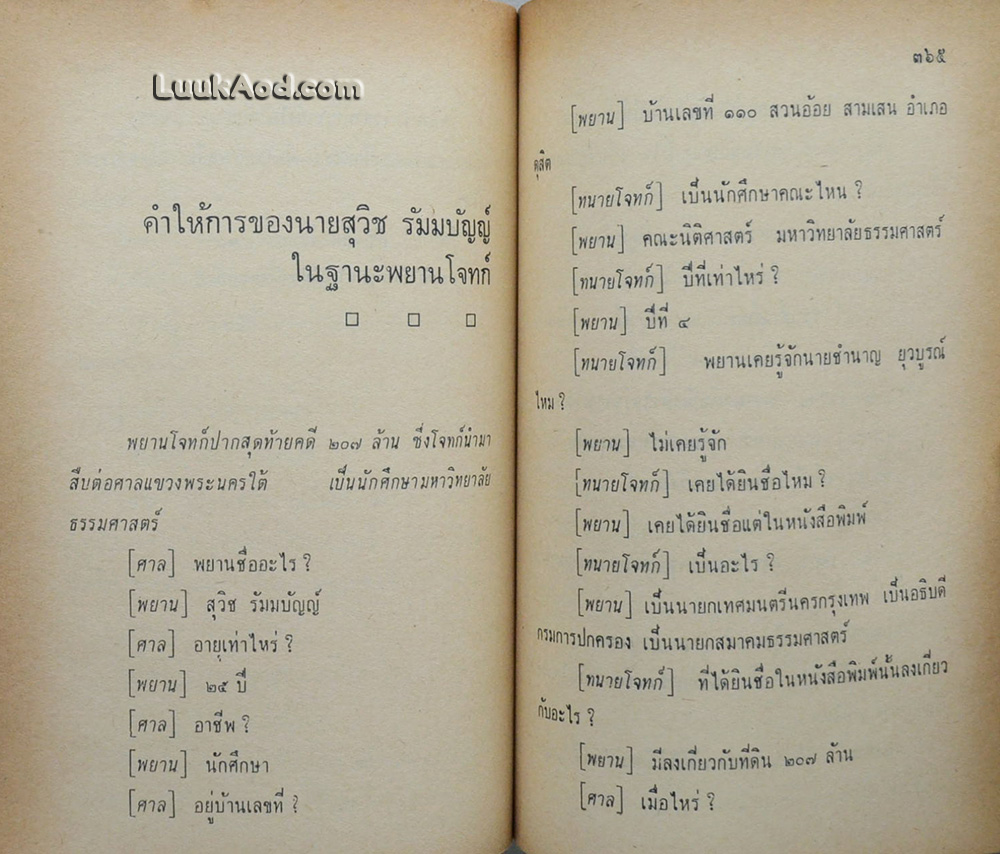 LuukAod.com
คำให้การของนายสุวิช รัมมบัญญ์
ในฐานะพยานโจทก์
□ □ □
พยานโจทก์ปากสุดท้ายคดี ๒๐๗ ล้าน ซึ่งโจทก์นำมา
สืบต่อศาลแขวงพระนครใต้ เป็นนักศึกษามหาวิทยาลัย
ธรรมศาสตร์
[ศาล] พยานชื่ออะไร ?
[พยาน] สุวิช รัมมบัญญ์
[ศาล] อายุเท่าไหร่ ?
[พยาน] ๒๕ ปี
[ศาล] อาชีพ ?
[พยาน] นักศึกษา
[ศาล] อยู่บ้านเลขที่ ?
๓๖๕
[พยาน] บ้านเลขที่ ๑๑๐ สวนอ้อย สามเสน อำเภอ
ดุสิต
[ทนายโจทก์] เป็นนักศึกษาคณะไหน ?
[พยาน] คณะนิติศาสตร์ มหาวิทยาลัยธรรมศาสตร์
[ทนายโจทก์] ปีที่เท่าไหร่ ?
[พยาน] ปีที่ ๔
[ทนายโจทก์] พยานเคยรู้จักนายชำนาญ ยุวบูรณ์
ไหม ?
[พยาน] ไม่เคยรู้จัก
[ทนายโจทก์] เคยได้ยินชื่อไหม ?
[พยาน] เคยได้ยินชื่อแต่ในหนังสือพิมพ์
[ทนายโจทก์] เป็นอะไร ?
[พยาน] เป็นนายกเทศมนตรีนครกรุงเทพ เป็นอธิบดี
กรมการปกครอง เป็นนายกสมาคมธรรมศาสตร์
[ทนายโจทก์] ที่ได้ยินชื่อในหนังสือพิมพ์นั้นลงเกี่ยว
กับอะไร ?
[พยาน] มีลงเกี่ยวกับที่ดิน ๒๐๗ ล้าน
[ศาล] เมื่อไหร่ ?